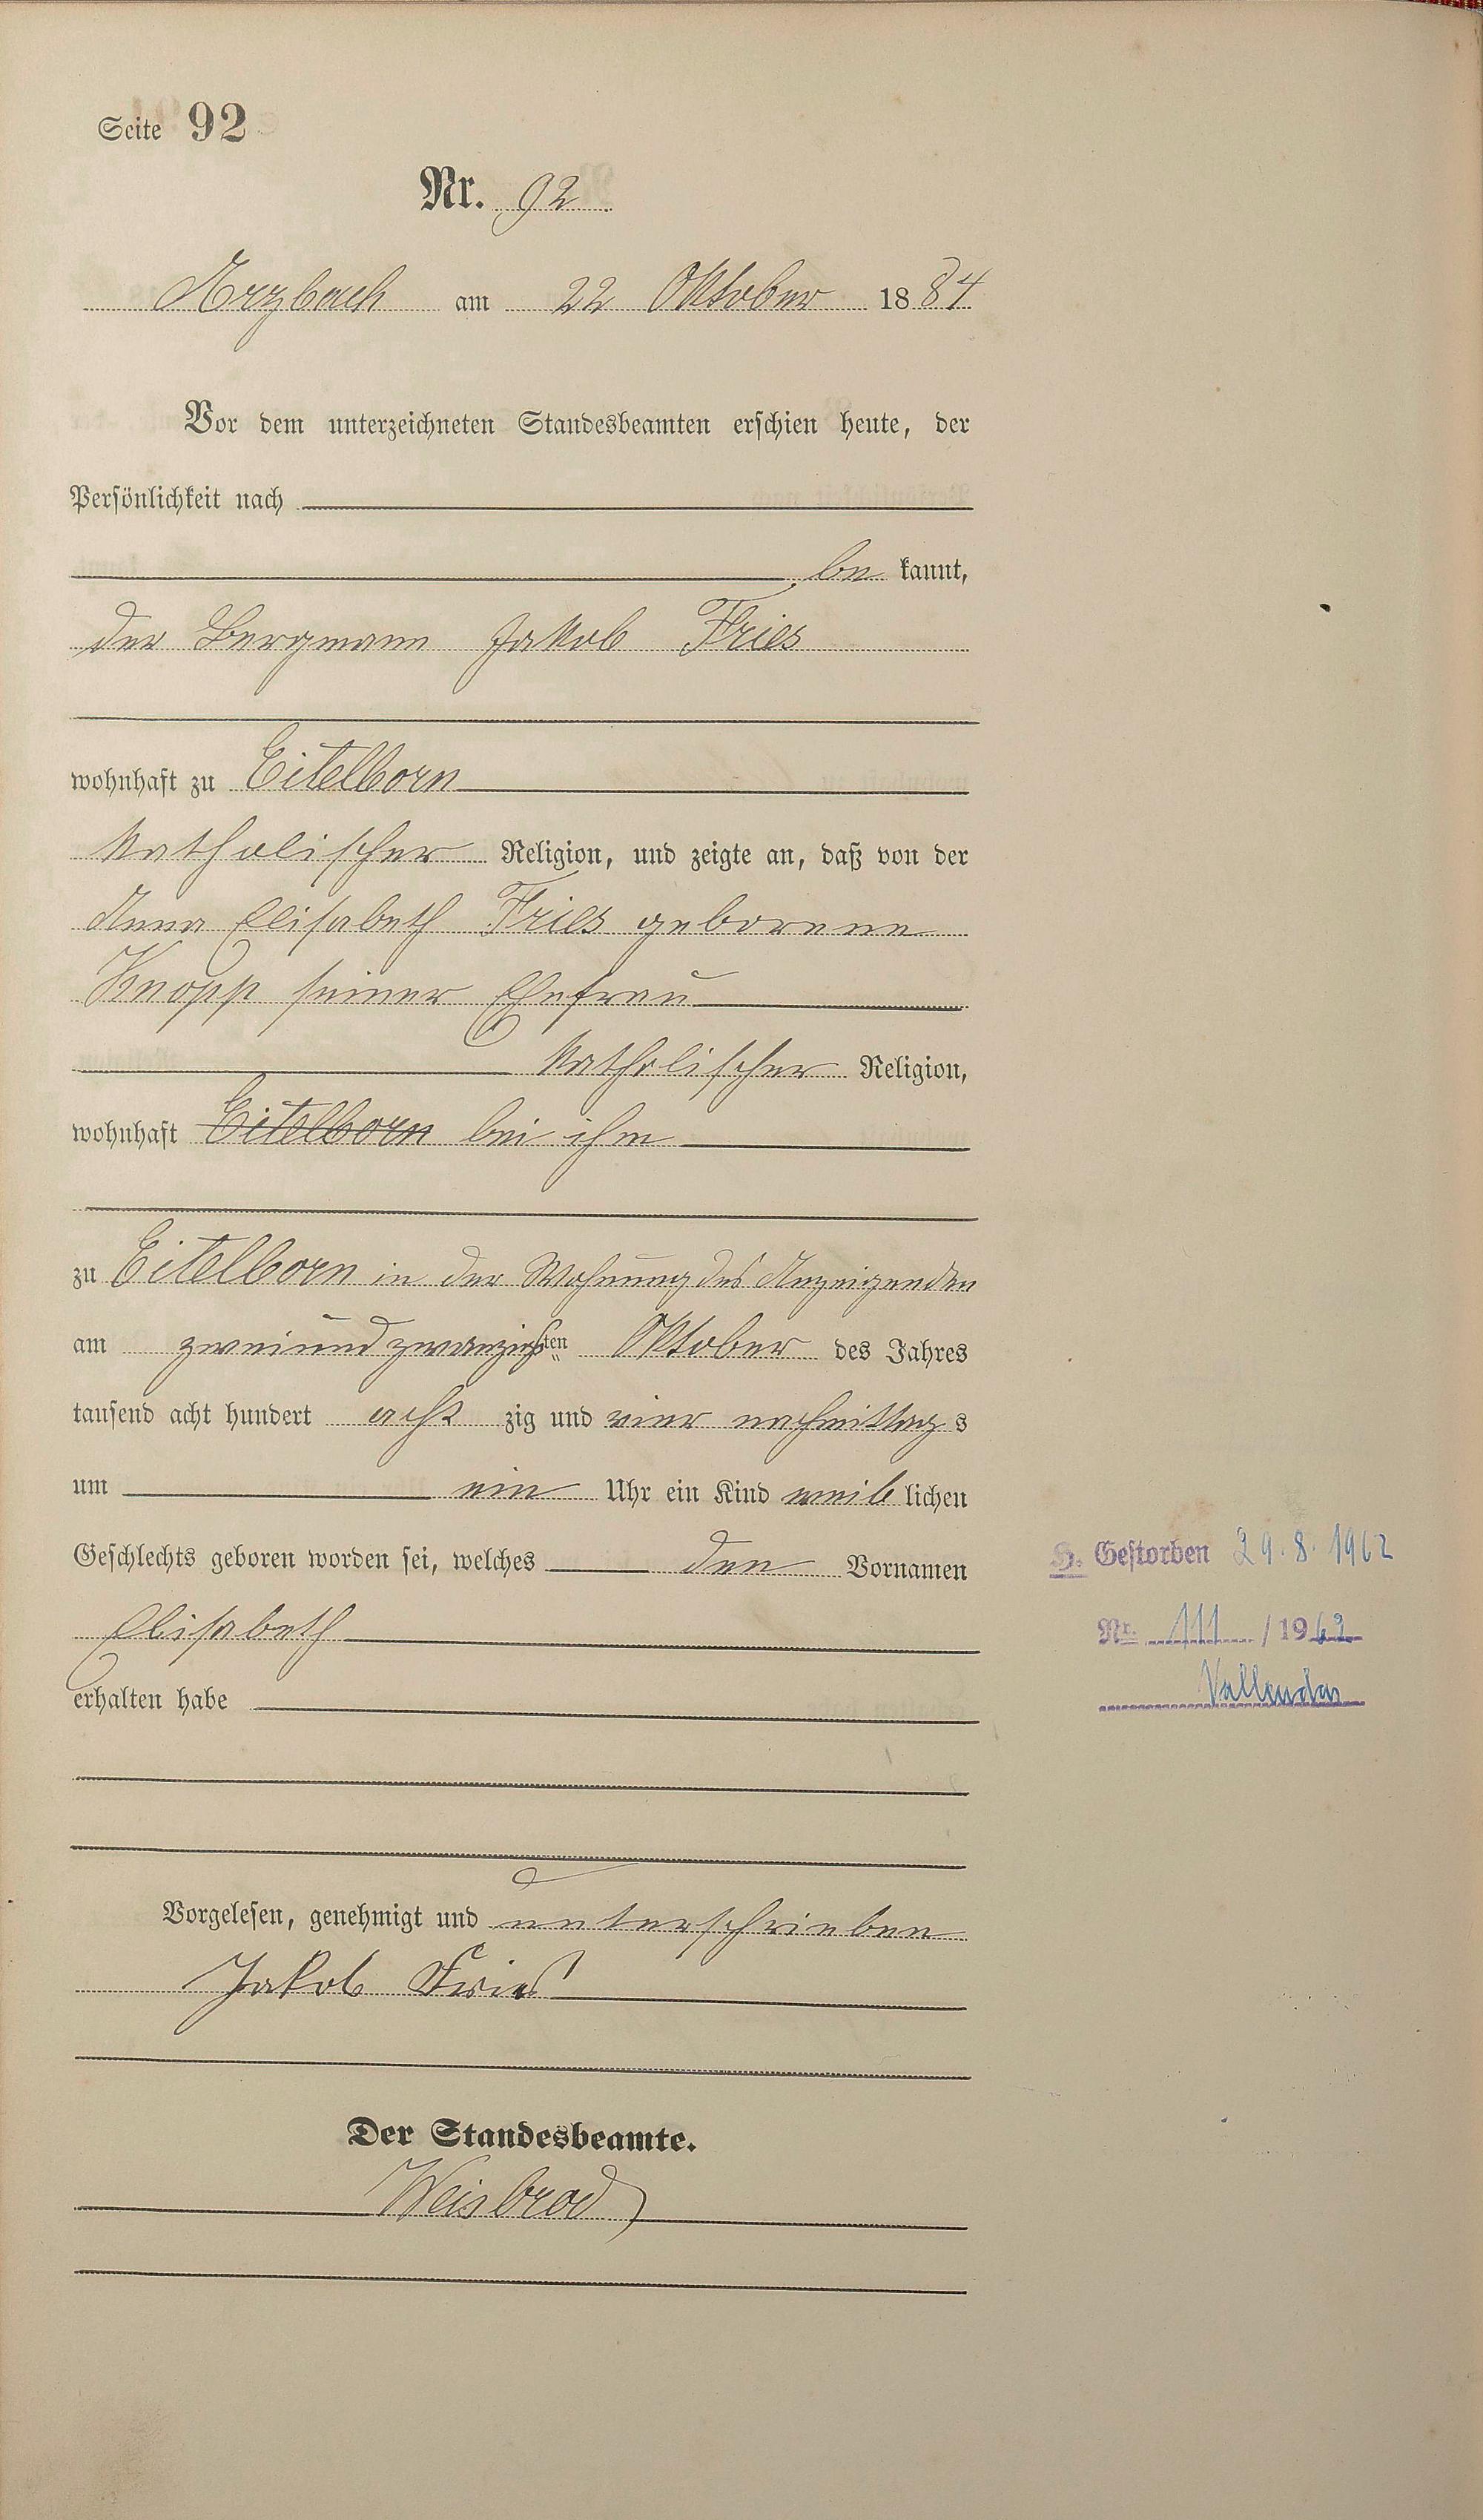 Seite 92
Nr. 92
Arzbach am 22 Oktober 1884
Vor dem unterzeichneten Standesbeamten erschien heute, der
Persönlichkeit nach
be kannt,
der Bergmann Jakob Fries
wohnhaft zu Eitelborn
katholischer Religion, und zeigte an, daß von der
Anna Elisabeth Fries geborene
Knopp seiner Ehefrau
katholischer Religion,
wohnhaft Eitelborn bei ihm
zu Eitelborn in der Wohnung des Anzeigenden
am zweiundzwanzigsten Oktober des Jahres
tausend acht hundert acht zig und vier nachmittags
um ein Uhr ein Kind weib lichen
Geschlechts geboren worden sei, welches den Vornamen
Elisabeth
erhalten habe
H. Gestorben 29.8.1962
Nr. 111 / 1962
Vallendar
Vorgelesen, genehmigt und unterschrieben
Jakob Fries
Der Standesbeamte.
Weisbrod